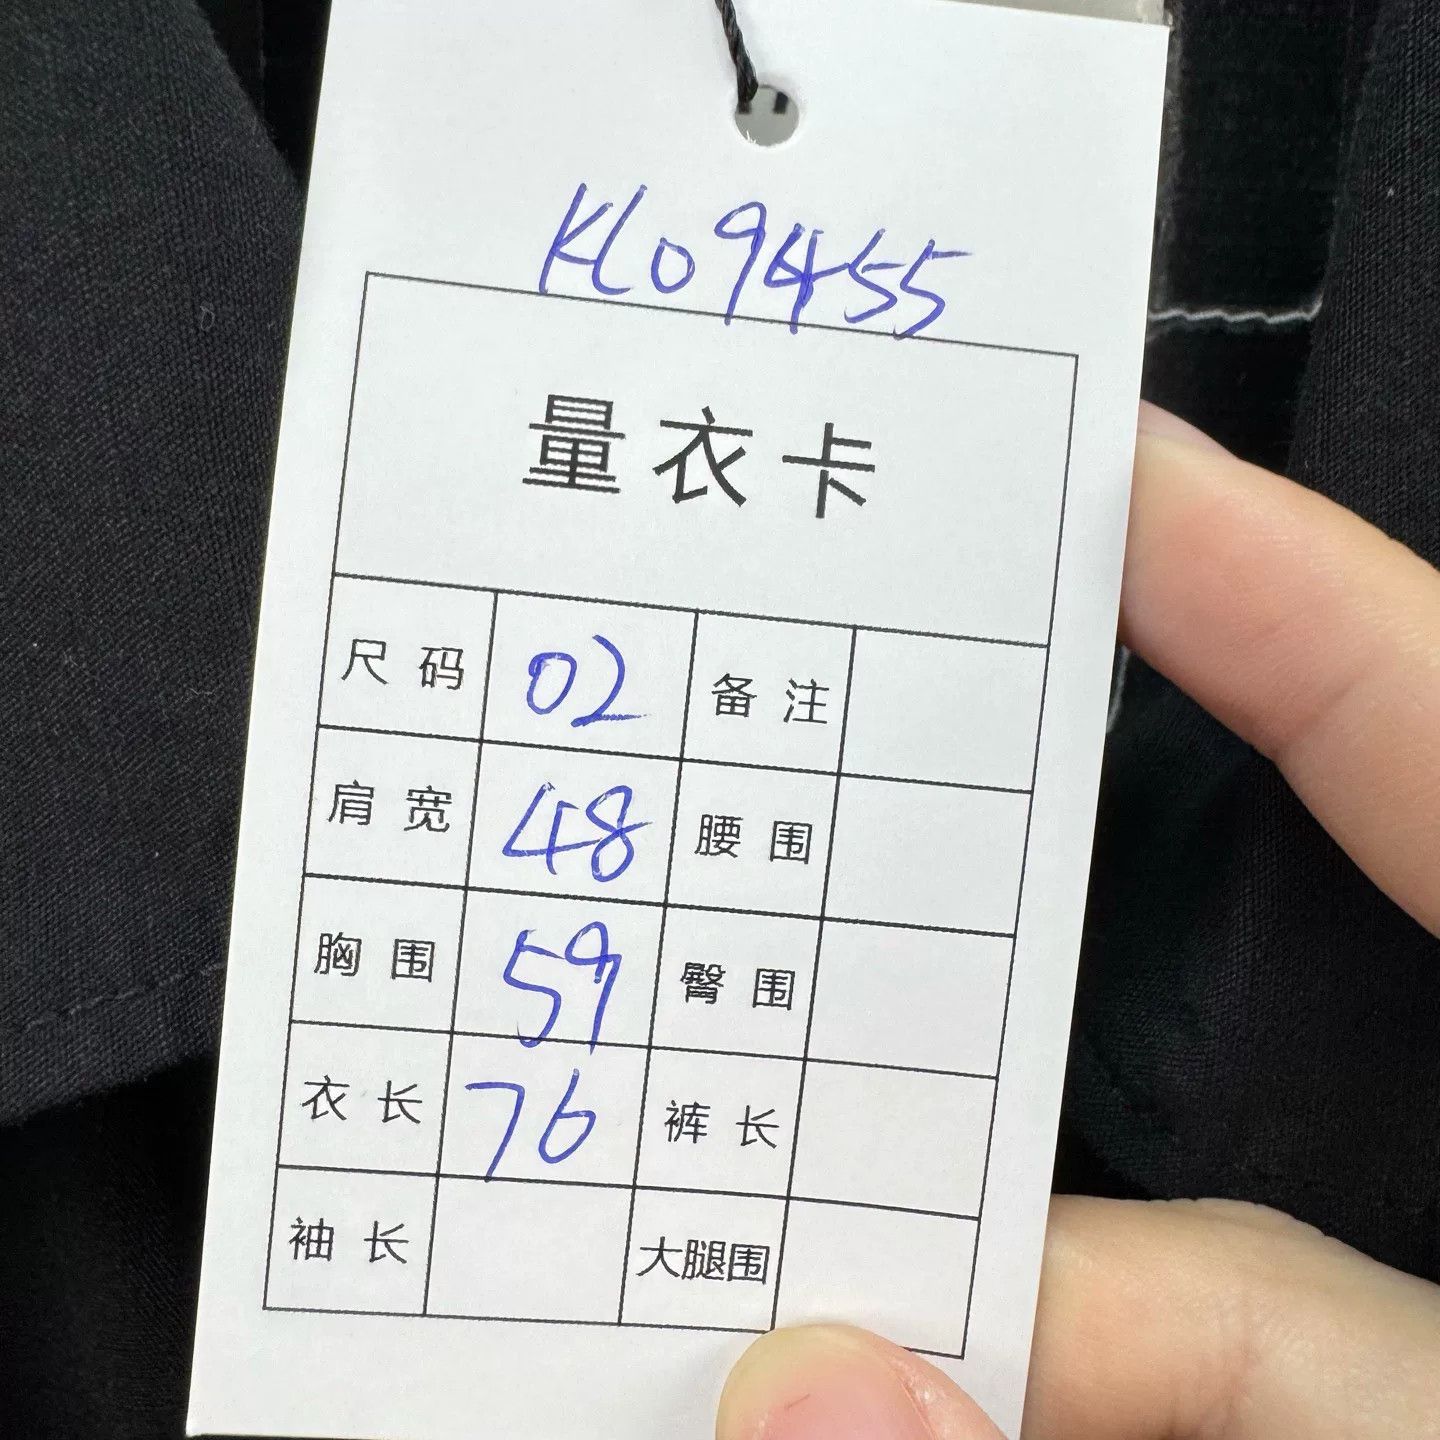 KL09455
量衣卡
尺码 02 备注
肩宽 48 腰围
胸围 59 臀围
衣长 76 裤长
袖长 大腿围